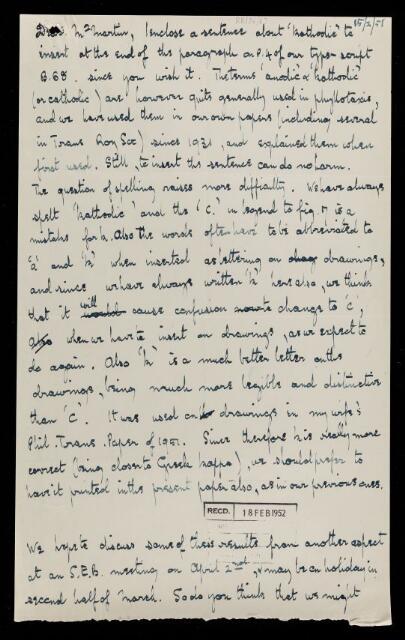 15/2/52
Dear Mr Martin, I enclose a sentence about 'kathodic' to
insert at the end of the paragraph on p. 4 of our typescript
B.68. since you wish it. The terms 'anodic' & 'kathodic'
(or cathodic) are however quite generally used in phyllotaxis,
and we have used them in our own papers (including several
in Trans Roy Soc) since 1931, and explained them when
first used. Still, to insert the sentence can do no harm.
The question of spelling raises more difficulty. We have always
spelt 'kathodic' and the 'c.' in legend to fig. is a
mistake for k. Also the words often have to be abbreviated to
'a' and 'k' when inserted as lettering on drawings,
and since we have always written 'k' here also, we think
that it will cause confusion to change to 'c',
also when we have to insert on drawings, as we expect to
do again. Also 'k' is a much better letter on the
drawings, being much more legible and distinctive
than 'c'. It was used on drawings in my wife's
Phil. Trans. Paper of 1951. Since therefore k is really more
correct (being closer to Greek kappa), we should prefer to
have it printed in the present paper also, as in our previous ones.
RECD. 18 FEB 1952
We hope to discuss some of these results from another aspect
at an S.E.B. meeting on April 2nd, & may be on holiday in
second half of March. So do you think that we might